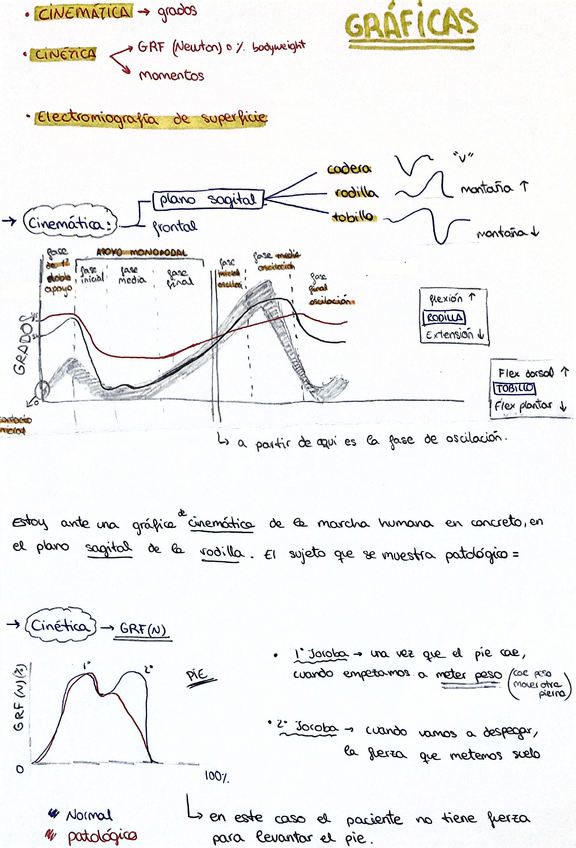 GRÁFICAS
• CINEMÁTICA → grados
• CINÉTICA → GRF (Newton) o % bodyweight
→ momentos
• Electromiografía de superficie
→ Cinemática:
plano sagital
frontal
cadera "V"
rodilla montaña ↑
tobillo montaña ↓
fase de doble apoyo
APOYO MONOPODAL
fase inicial
fase media
fase final
fase inicial oscilación
fase media oscilación
fase final oscilación
GRADOS
contacto inicial
flexión ↑
RODILLA
Extensión ↓
Flex dorsal ↑
TOBILLO
Flex plantar ↓
↳ a partir de aquí es la fase de oscilación.
Estoy ante una gráfica de cinemática de la marcha humana en concreto, en
el plano sagital de la rodilla. El sujeto que se muestra patológico =
→ Cinética → GRF(N)
GRF (N)(%)
1ª
2ª
PIE
0
100%
• 1ª Joroba → una vez que el pie cae,
cuando empezamos a meter peso (cae peso
mover otra
pierna)
• 2ª Joroba → cuando vamos a despegar,
la fuerza que metemos suelo
Normal
patológico
↳ en este caso el paciente no tiene fuerza
para levantar el pie.